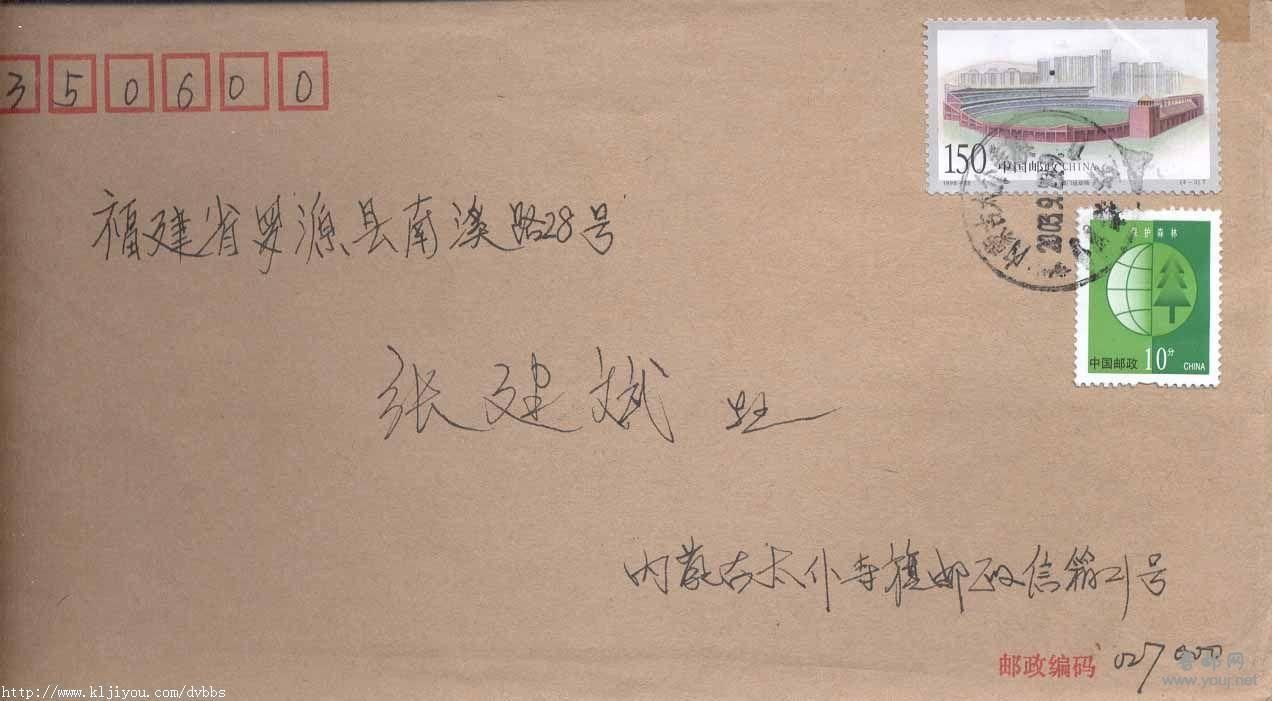 350600
150分
中国邮政 CHINA
福建省罗源县南溪路28号
保护森林
中国邮政 10分 CHINA
张建斌
内蒙古太仆寺旗邮政信箱21号
邮政编码 027000
鲁邮网
www.youj.net
http://www.kljiyou.com/dvbbs